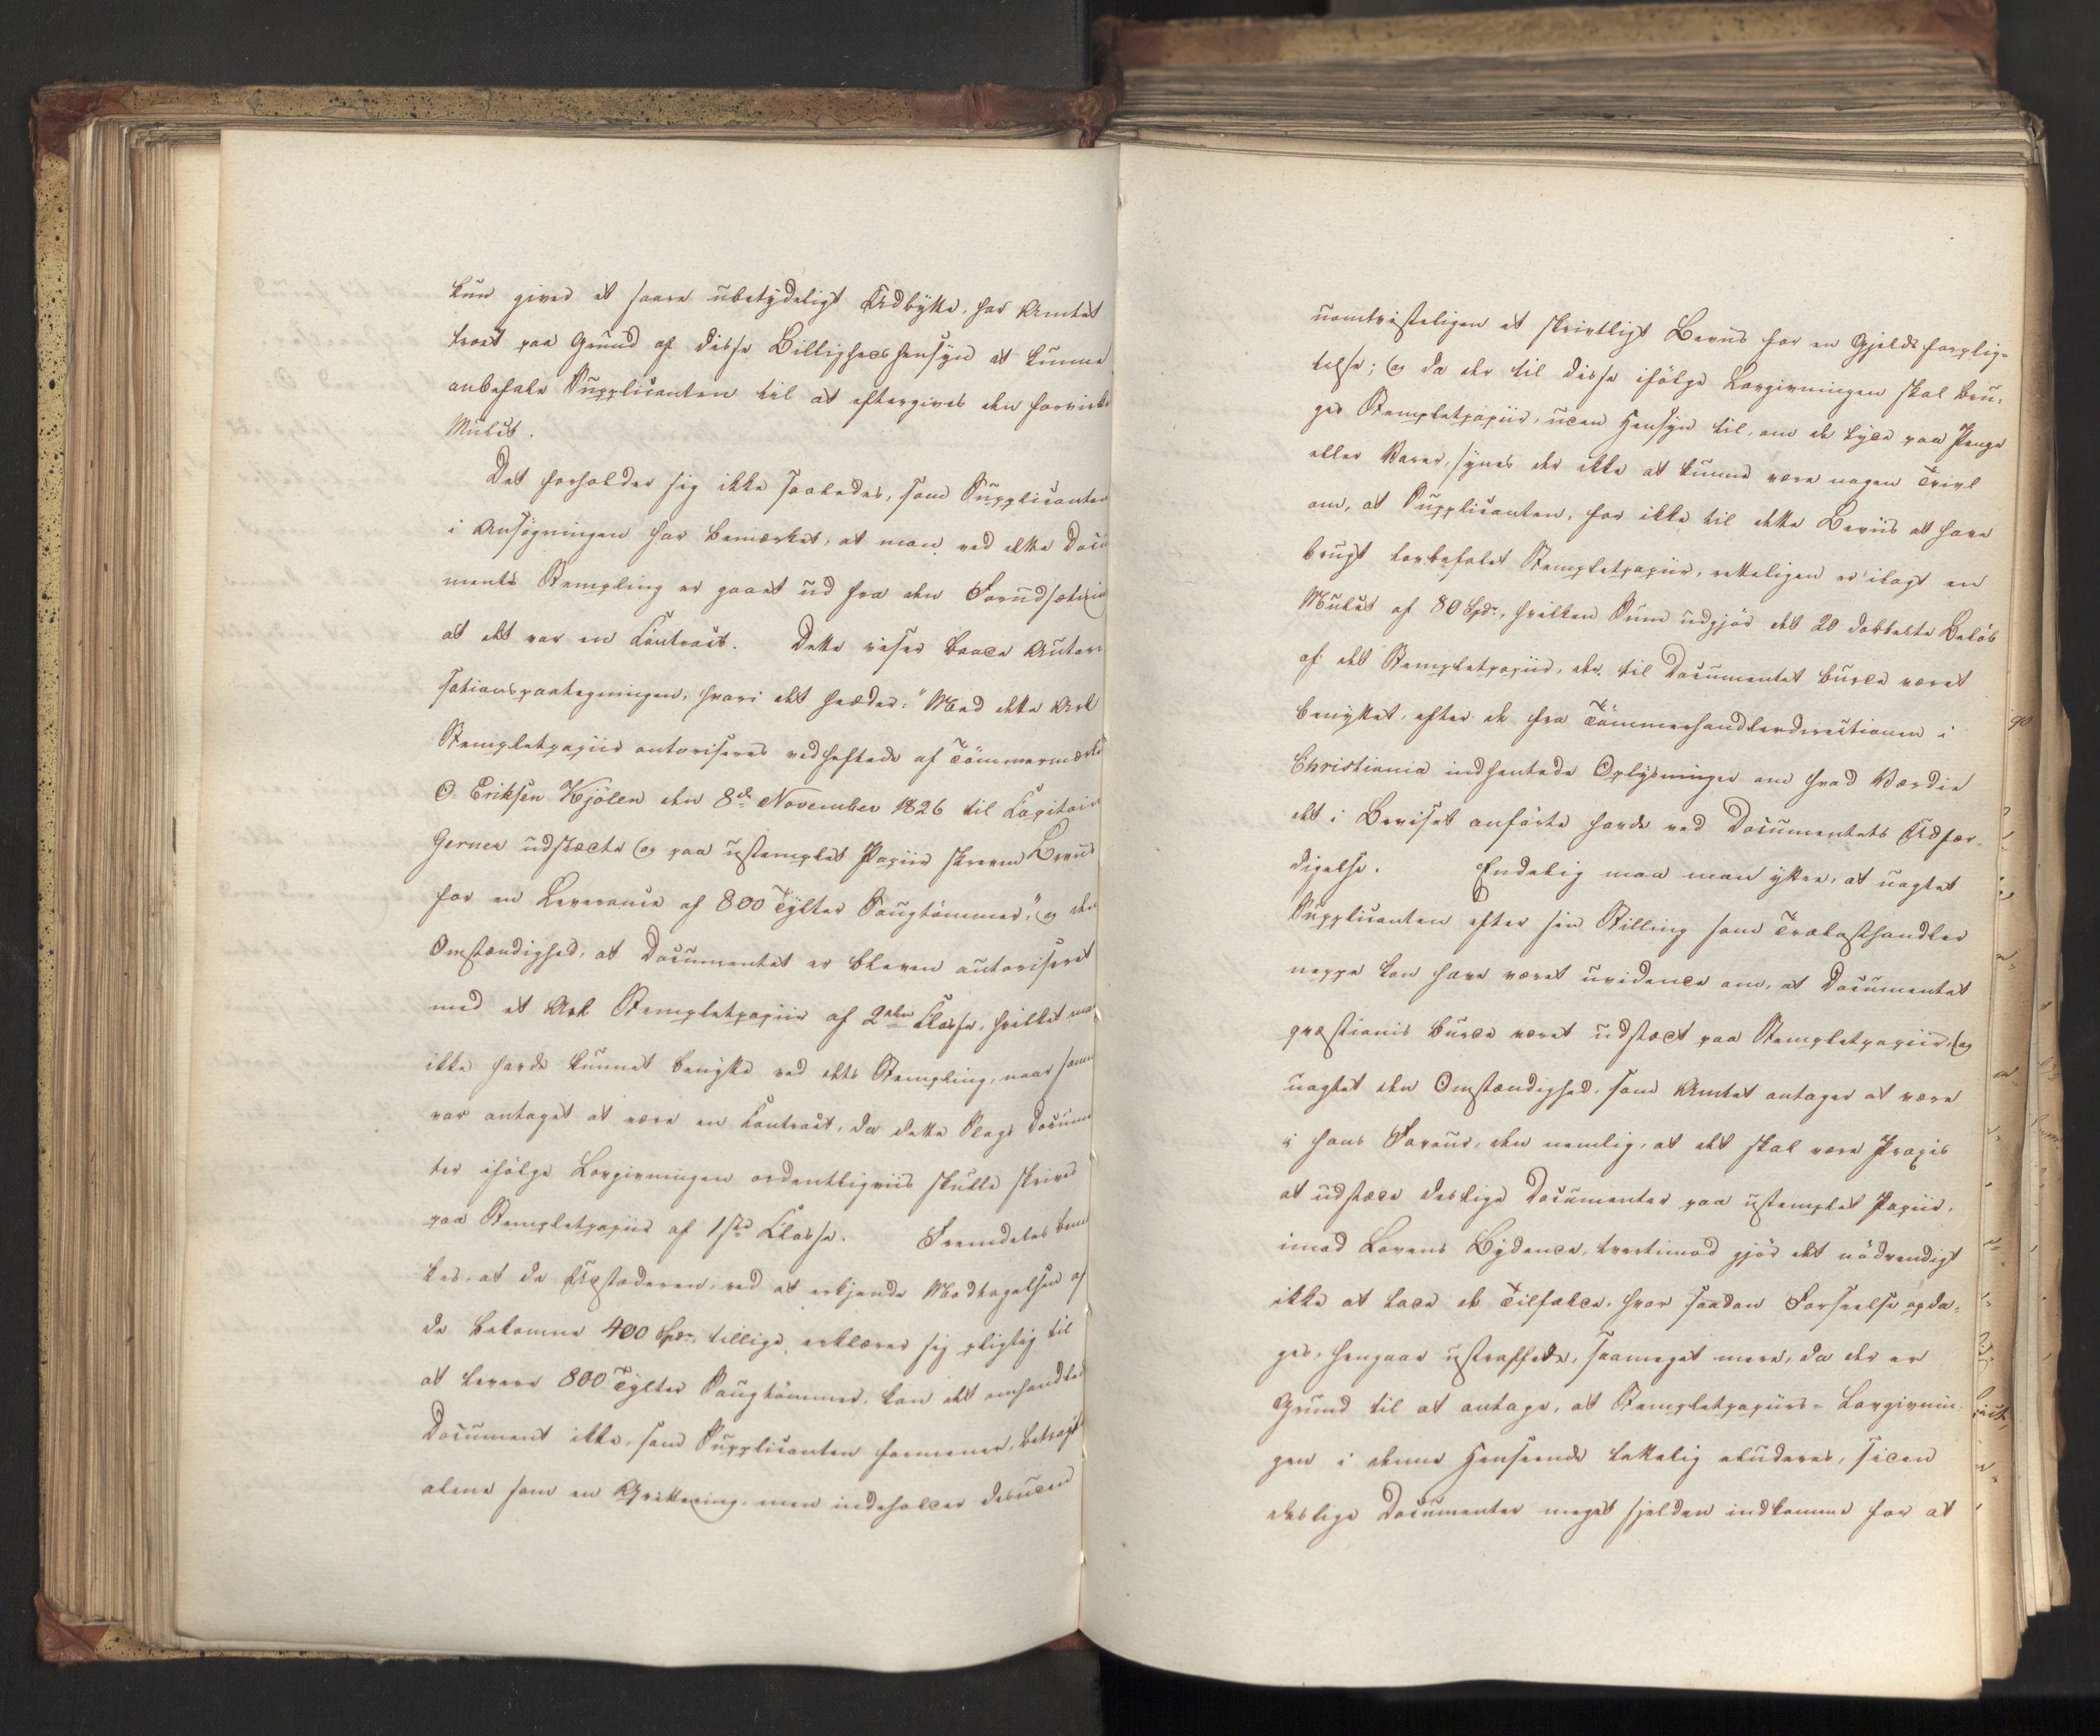 kun gives et saare ubetydeligt Udbytte, har Amtet
troet paa Grund af disse Billighedshensyn at kunne
anbefale Supplicanten til at eftergives den forvirkede
Mulct.
Det forholder sig ikke saaledes, som Supplicanten
i Ansøgningen har bemærket, at man ved dette Docu
ments Stempling er gaaet ud fra den Forudsætning
at det var en Contract. Dette viser baade Autori
sationspaategningen, hvori det hedder: "Med dette Ark
Stempletpapiir autoriseres vedheftede af Tömmermærker
O. Eriksen Kjölen den 8de November 1826 til Capitain
Gerner udstædte og paa ustemplet Papiir skrevne Beviis
for en Leverance af 800 Tylter Saugtömmer," og den
Omstændighed, at Documentet er bleven autoriseret
med et Ark Stempletpapiir af 2den Classe, hvilket man
ikke havde kunnet benytte ved dets Stempling, naar samme
var antaget at være en Contract, da dette Slags Documen
ter ifölge Lovgivningen ordentligviis skulle skrives
paa Stempletpapiir af 1ste Classe. Fremdeles bemær
kes, at da Udstæderen, ved at erkjende Modtagelsen af
de bekomne 400 Spdr, tillige erklærer sig pligtig til
at levere 800 Tylter Saugtömmer, kan det omhandlede
Document ikke, som Supplicanten formener, betragtes
alene som en Qvittering, men indeholder desuden
uomtvisteligen et skrivtligt Beviis for en Gjeldsforplig-
telse; og da der til disse ifölge Lovgivningen skal bru-
ges Stempletpapiir, uden Hensyn til, om de lyde paa Penge
eller Varer, synes der ikke at kunne være nogen Tvivl
om, at Supplicanten, for ikke til dette Beviis at have
brugt lovbefalet Stempletpapiir, retteligen er ilagt en
Mulct af 80 Spdr, hvilken Sum udgjör det 20 dobbelte Belöb
af det Stempletpapiir, der til Documentet burde været
benyttet, efter de fra Tömmerhandlerdirectionen i
Christiania indhentede Oplysninger om hvad Værdie
det i Beviset anförte havde ved Documentets Udfær-
digelse. Endelig maa man yttre, at uagtet
Supplicanten efter sin Stilling som Trælasthandler
neppe kan have været uvidende om, at Documentet
qvæstionis burde været udstædt paa Stempletpapiir, og
uagtet den Omstændighed, som Amtet antager at være
i hans Faveur, den nemlig, at det skal være Praxis
at udstæde deslige Documenter paa ustemplet Papiir,
imod Lovens Bydende, tvertimod gjör det nödvendigt
ikke at lade de Tilfælde, hvor saadan Forseelse opda-
ges, hengaae ustraffede, saameget mere, da der er
Grund til at antage, at Stempletpapiirs-Lovgivnin-
gen i denne Henseende lettelig eluderes, siden
deslige Documenter meget sjelden indkomme for at